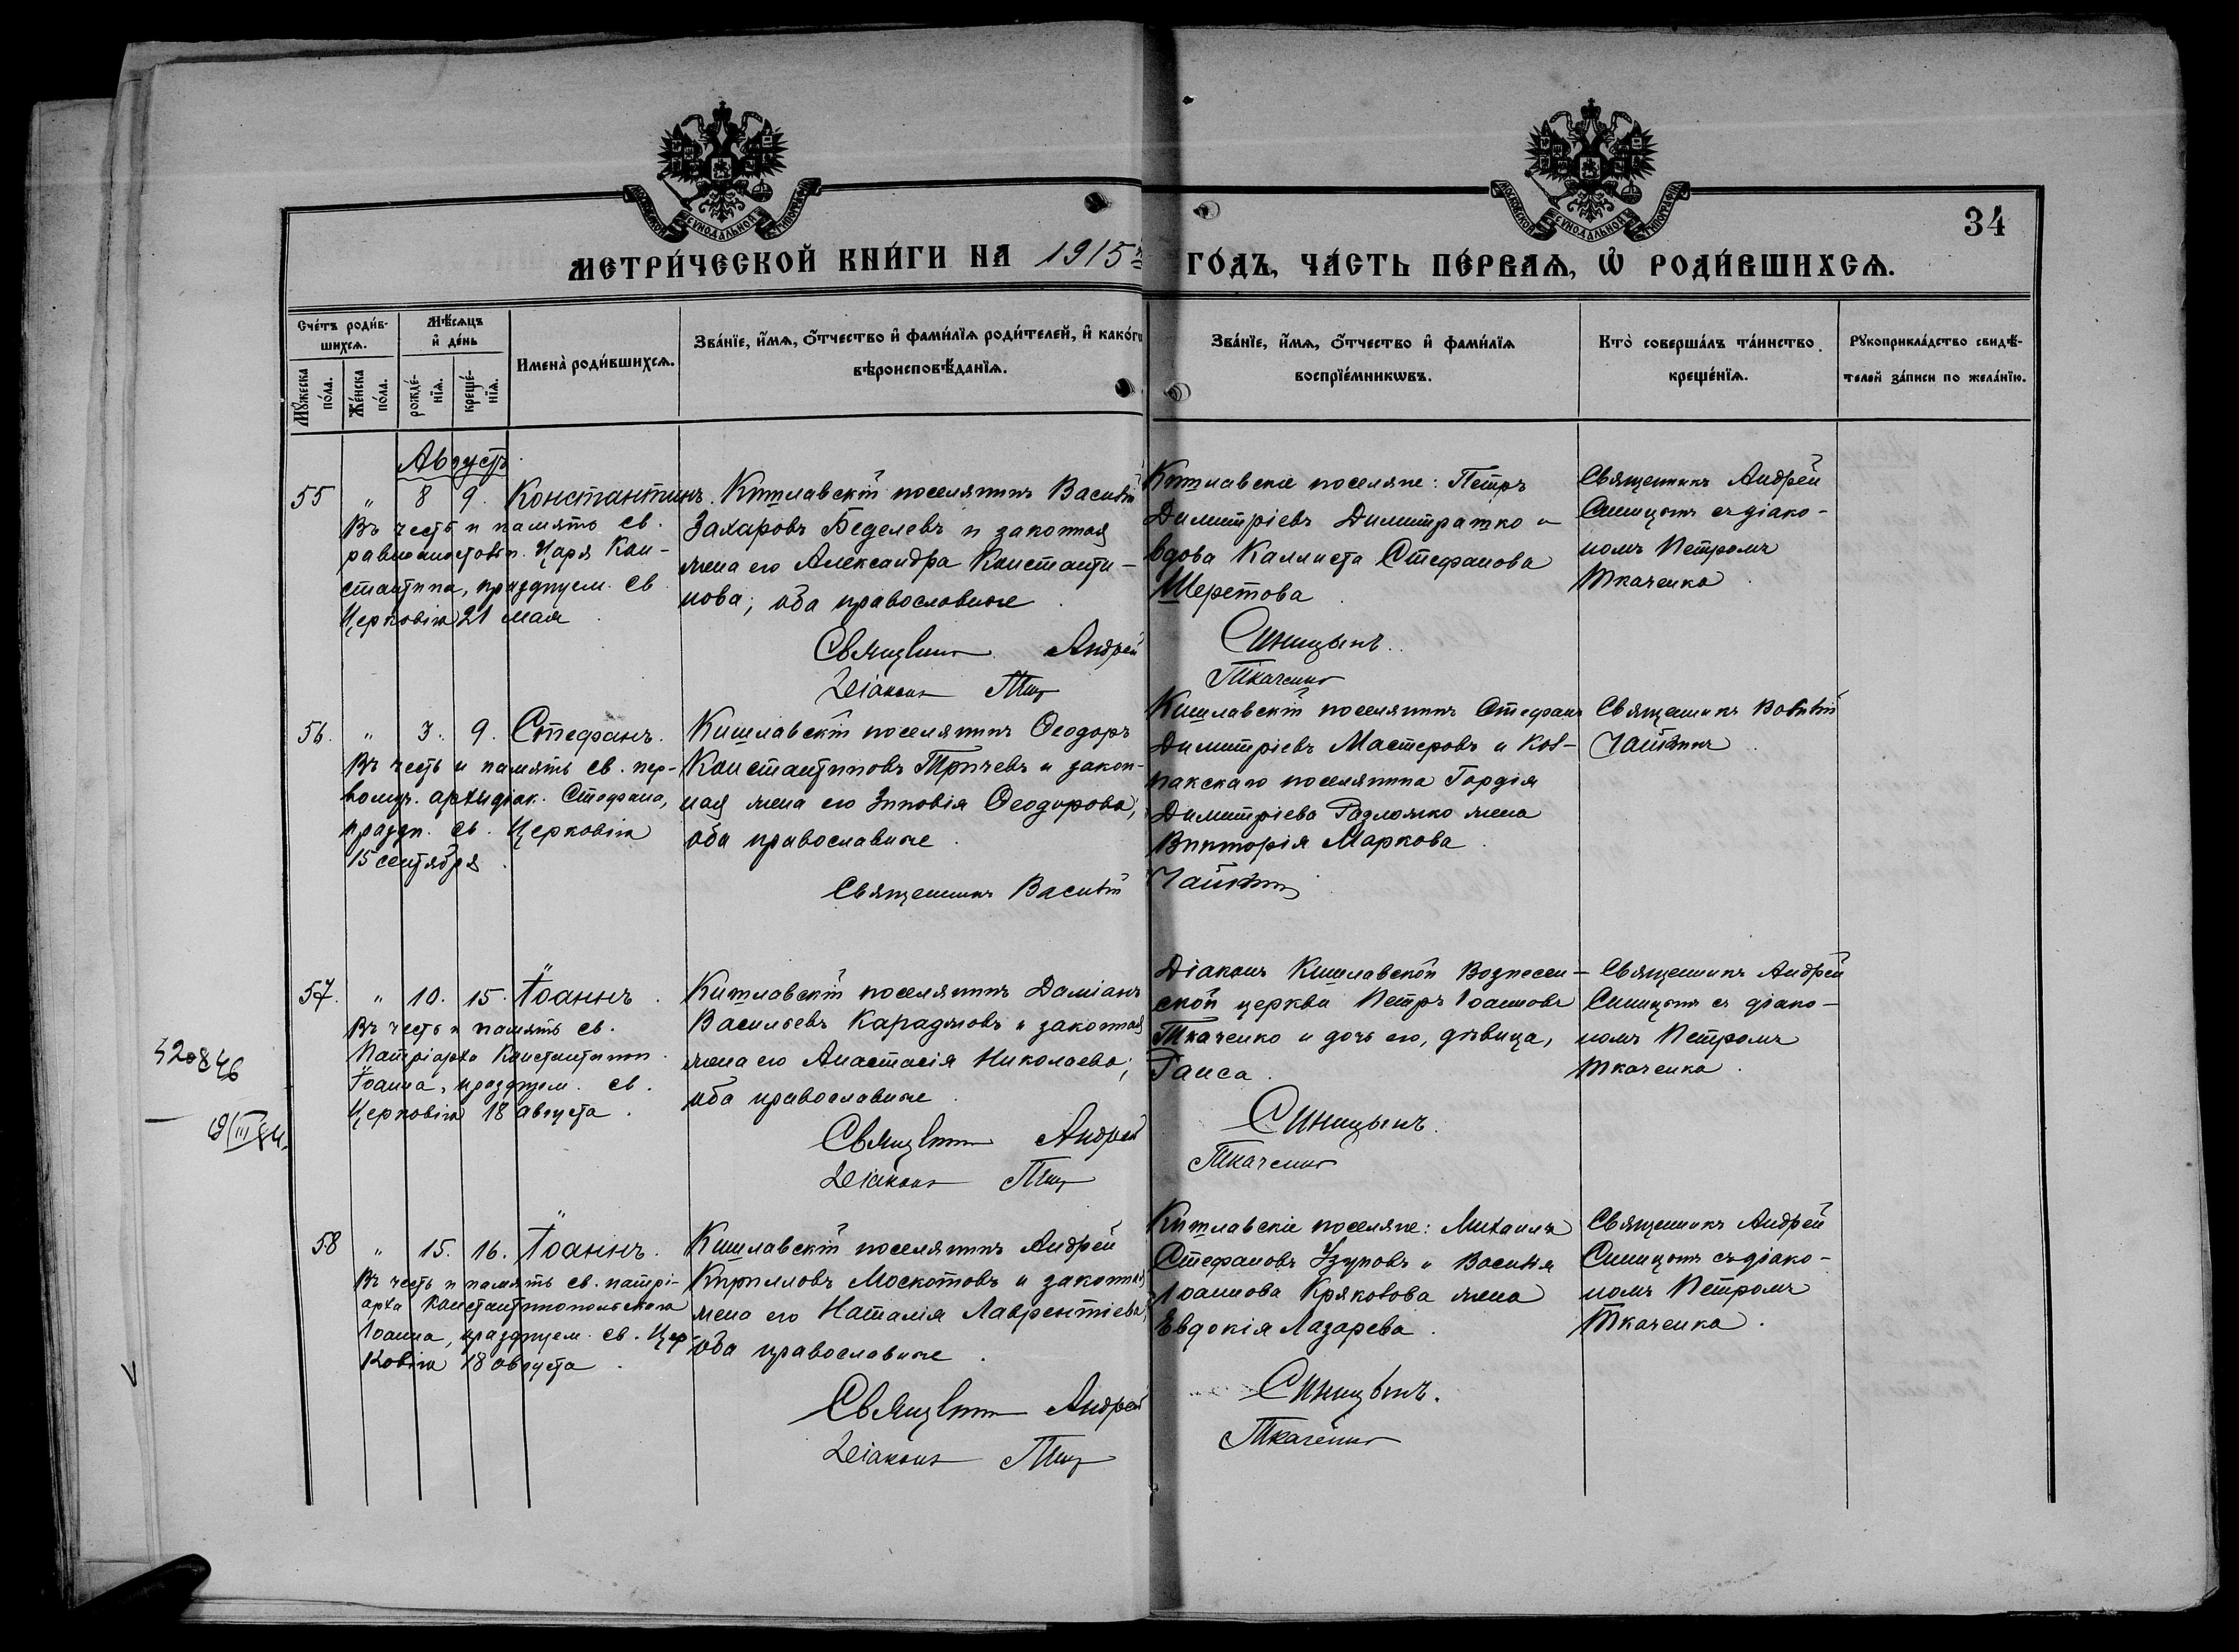 МОСКОВСКОЙ СѴНОДАЛЬНОЙ ТИПОГРАФІИ
МОСКОВСКОЙ СѴНОДАЛЬНОЙ ТИПОГРАФІИ
34
МЕТРИ́ЧЕСКОЙ КНИ́ГИ НА 1915й ГО́ДЪ, ЧА́СТЬ ПЕ́РВАѦ, Ѡ҆ РОДИ́ВШИХСѦ.
Сче́тъ роди́в-
шихсѧ.
Мꙋ́жеска
по́ла.
Же́нска
по́ла.
Мѣ́сѧцъ
и҆ де́нь
рожде́-
нїѧ.
креще́-
нїѧ.
Имена̀ роди́вшихсѧ.
Зва́нїе, и҆́мѧ, ѻ҆́тчество и҆ фами́лїѧ роди́телей, и҆ како́гѡ
вѣроисповѣ́данїѧ.
Зва́нїе, и҆́мѧ, ѻ҆́тчество и҆ фами́лїѧ
воспрїе́мникѡвъ.
Кто̀ соверша́лъ та́инство
креще́нїѧ.
Рꙋкоприкла́дство свидѣ́-
телей за́писи по жела́нїю.
Августъ.
55 " 8 9. Константинъ.
Въ честь и память св.
равноапостольн. Царя Кон-
стантина, празднуем. св
Церковію 21 мая
Кишлавскій поселянинъ Василій
Захаровъ Беделевъ и законная
жена его Александра Константи-
нова; оба православные
Священникъ Андрей
Діаконъ Петръ
Кишлавскіе поселяне: Петръ
Димитріевъ Димитратко и
вдова Каллиста Стефанова
Шеретова
Синицынъ.
Ткаченко
Священникъ Андрей
Синицынъ съ діако-
номъ Петромъ
Ткаченко
56. " 3. 9. Стефанъ.
Въ честь и память св. пер-
вомуч. архидіак. Стефана,
праздн. св. Церковію
15 сентября
Кишлавскій поселянинъ Ѳеодоръ
Константиновъ Тричевъ и закон-
ная жена его Зиновія Ѳеодорова;
оба православные
Священникъ Василій
Кишлавскій поселянинъ Стефанъ
Димитріевъ Мастеровъ и
поселянина Гордія
Димитріева жена
Викторія Маркова
Священникъ Василій
57. " 10. 15. Іоаннъ.
Въ честь и память св.
Патріарха Константиноп.
Іоанна, празднуем. св.
Церковію 18 августа.
Кишлавскій поселянинъ Даміанъ
Васильевъ Караджовъ и законная
жена его Анастасія Николаева;
оба православные
Священникъ Андрей
Діаконъ Петръ
Діаконъ Кишлавской Вознесен-
ской церкви Петръ Іоанновъ
Ткаченко и дочь его, дѣвица,
Таиса.
Синицынъ.
Ткаченко
Священникъ Андрей
Синицынъ съ діако-
номъ Петромъ
Ткаченко.
58 " 15. 16. Іоаннъ.
Въ честь и память св. патрі-
арха Константинопольскаго
Іоанна, празднуем. св. Цер-
ковію 18 августа.
Кишлавскій поселянинъ Андрей
Кирилловъ Москотовъ и законная
жена его Наталія Лаврентіева;
оба православные
Священникъ Андрей
Діаконъ Петръ
Кишлавскіе поселяне: Михаилъ
Стефановъ Узуновъ и Василія
Іоаннова Кряковова жена
Евдокія Лазарева.
Синицынъ.
Ткаченко
Священникъ Андрей
Синицынъ съ діако-
номъ Петромъ
Ткаченко.